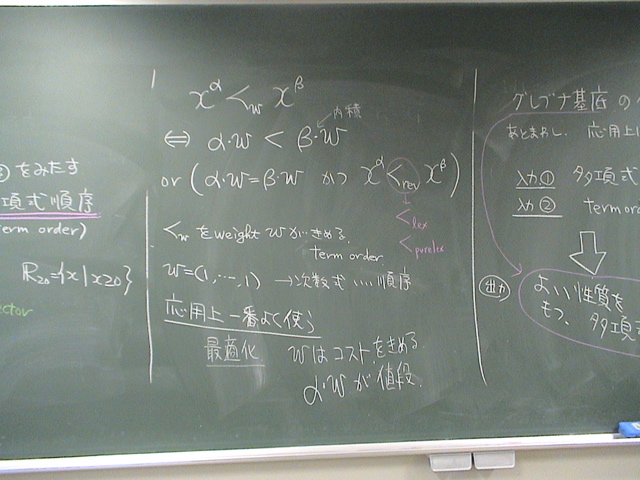 をみたす
項式順序
term order)
R≥0={x|x≥0}
ector
x^α <_w x^β
内積
⇔ α・w < β・w
or (α・w=β・w かつ x^α <_rev x^β)
<_lex
<_purelex
<_w をweight wがきめる
term order
w=(1,…,1) →次数式 …順序
応用上一番よく使う
最適化 wはコストをきめる
α・wが値段.
グレブナ基底の
あとまわし. 応用上
入力① 多項式
入力② term or
出力
よい性質を
もつ、多項